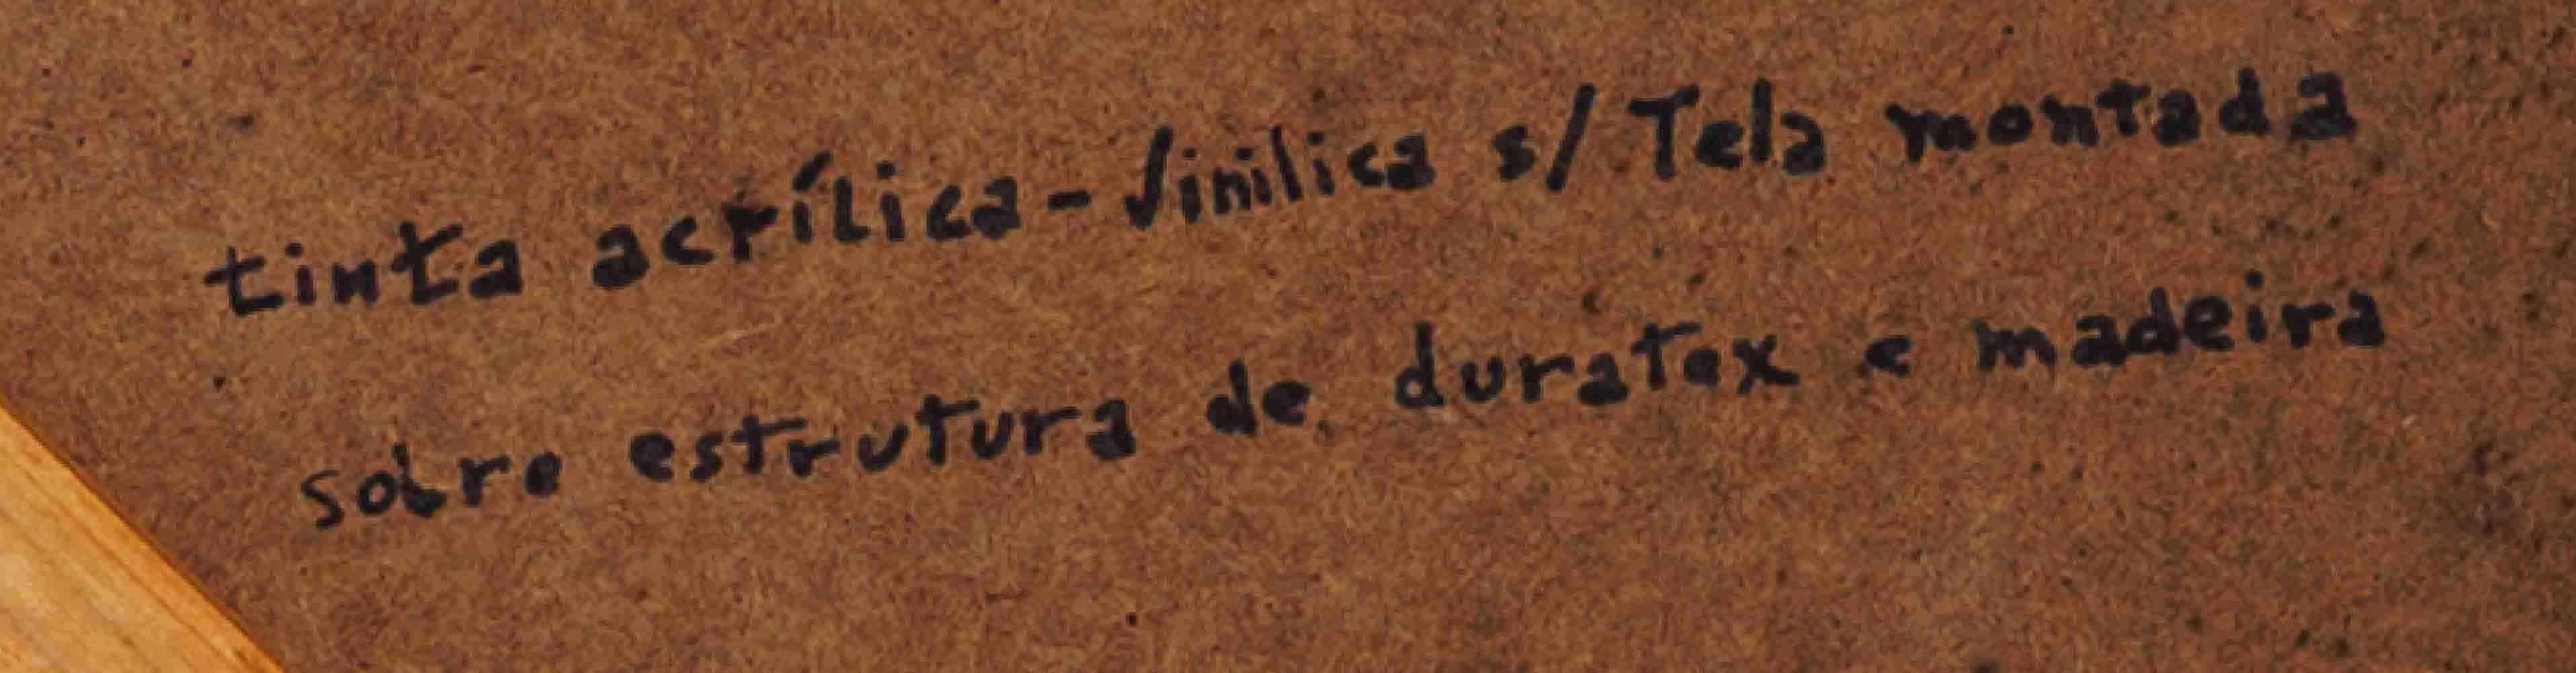 tinta acrílica-Vinilica s/ Tela montada
sobre estrutura de duratex e madeira